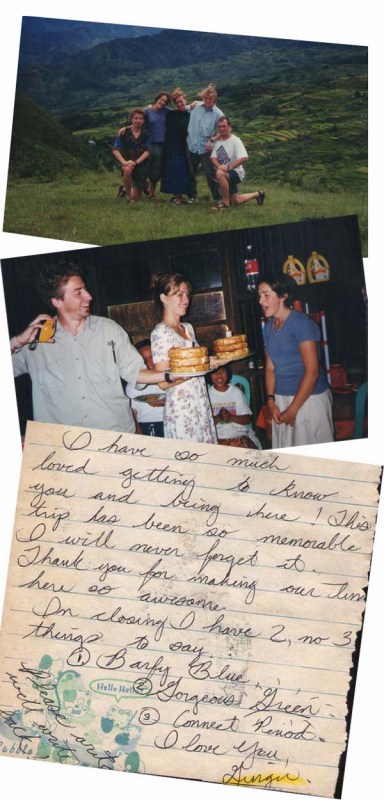 I have so much
loved getting to know
you and being here! This
trip has been so memorable
I will never forget it.
Thank you for making our time
here so awesome.
In closing I have 2, no 3
things to say
① Barfy Blue
② Gorgeous Green
③ Connect Period.
I love you
Please write
well write
back!
Hello Hello
Pebble